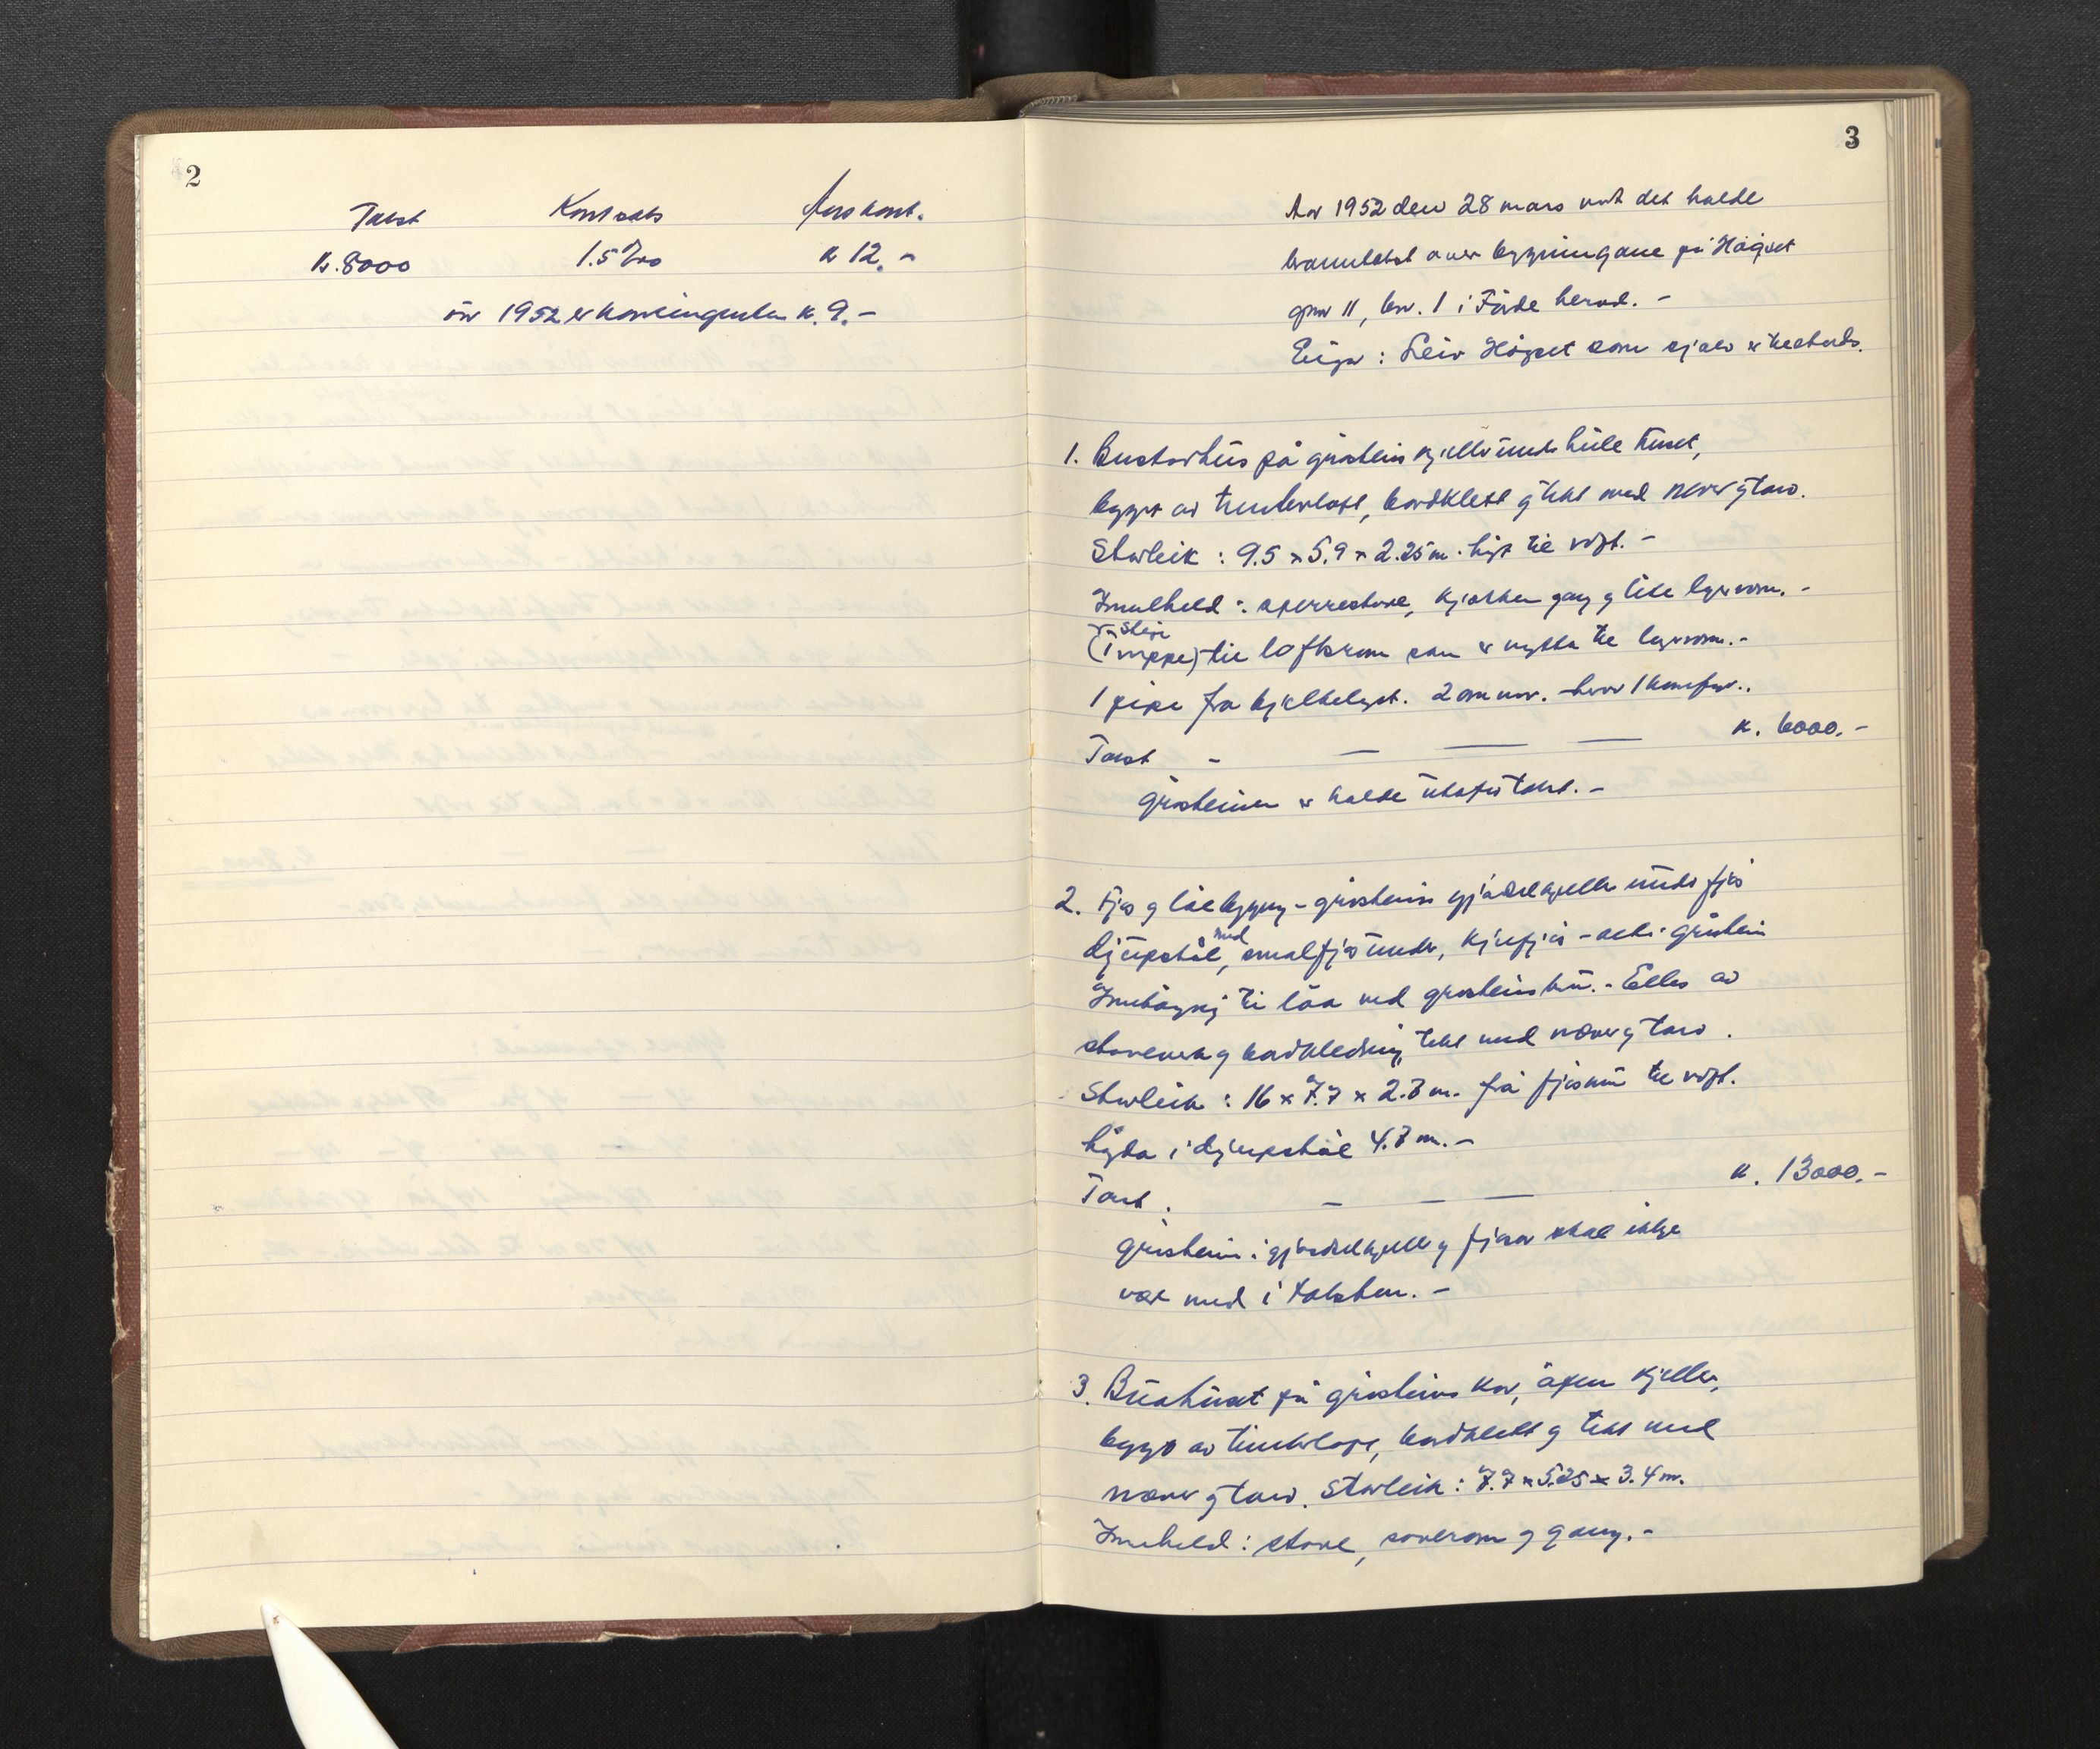 2
Takst Kont.sats Årskont.
kr. 8000 1.5 ‰ kr 12.-
for 1952 er kontingenten kr. 9.-
3
År 1952 den 28 mars vart det halde
branntakst over bygningane på Høgset
gnr 11, bnr. 1 i Førde herad. -
Eigar: Leiv Høgset som sjølv er tilstades.
1. Bustadhus på gråstein kjellar under heile huset,
bygt av timberlaft, bordkledt og tekt med never og torv.
Storleik: 9.5 x 5.9 x 2.25 m. høgt til røft. -
Innhald: sperrestove, kjøken gang og lite lagerrom. -
stige
(Trappe) til loftsrom som er nytta til lagerrom. -
1 pipe fra kjelleren. 2 omnar. 1 komfyr.
Takst - kr. 6000.-
gråsteinen er halde utafor takst. -
2. Fjøs og løebygning - gråsteins gjødselkjellar under fjøs
med
djupstål, smalfjøs under, kjufjøs - alt i gråstein
Innkøyring til løa med gråsteins bru. - Elles av
stovverk og bordkledning, tekt med never og torv.
Storleik: 16 x 7.7 x 2.8 m. frå fjøsmur til røft.
høgda i djupstål 4.8 m. -
Takst. kr. 13000.-
gråstein i gjødselkjellar og fjøsar skal ikkje
vere med i taksten. -
3. Buahuset på gråsteins mur, open kjellar,
bygt av timberlaft, bordkledt og tekt med
never og torv. Storleik: 7.7 x 5.25 x 3.4 m.
Innhald: stove, soverom og gang. -